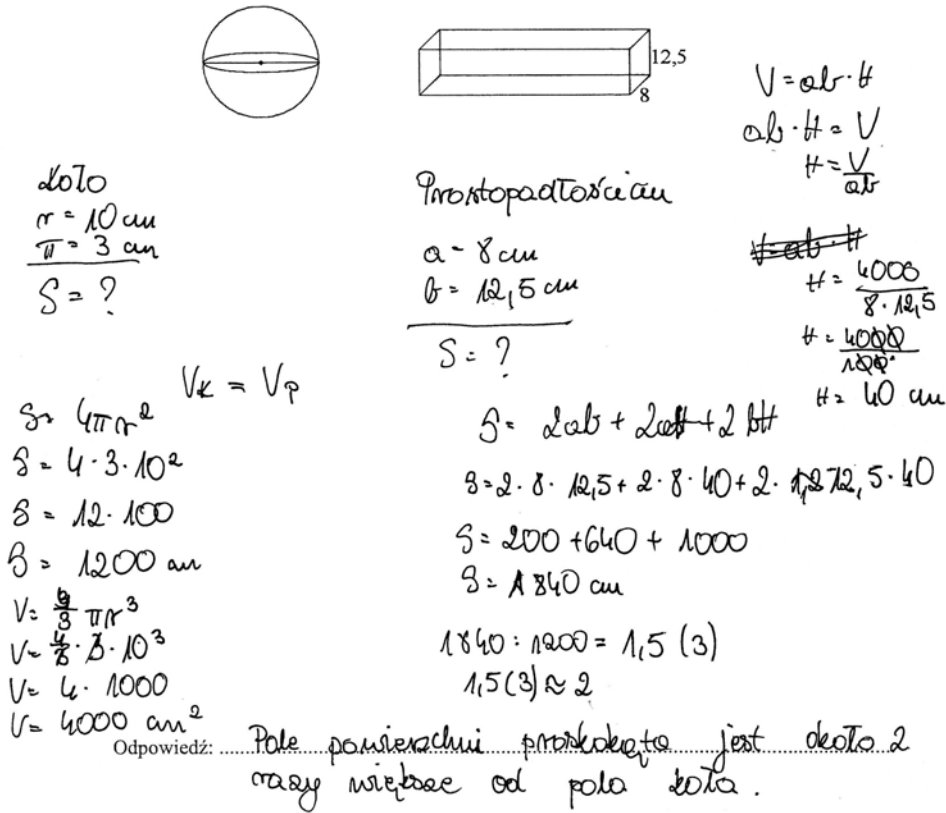 12,5
8
V = ab · H
ab · H = V
H = V/ab
V = ab · H
H = 4000/8 · 12,5
H = 4000/100
H = 40 cm
Koło
r = 10 cm
π = 3 cm
S = ?
Prostopadłościan
a = 8 cm
b = 12,5 cm
S = ?
Vk = Vp
S = 4πr²
S = 4 · 3 · 10²
S = 12 · 100
S = 1200 cm
V = 4/3 πr³
V = 4/3 · 3 · 10³
V = 4 · 1000
V = 4000 cm²
S = 2ab + 2aH + 2bH
S = 2 · 8 · 12,5 + 2 · 8 · 40 + 2 · 12,5 · 40
S = 200 + 640 + 1000
S = 1840 cm
1840 : 1200 = 1,5 (3)
1,5(3) ≈ 2
Odpowiedź: Pole powierzchni proskokąta jest około 2
razy większe od pola koła.